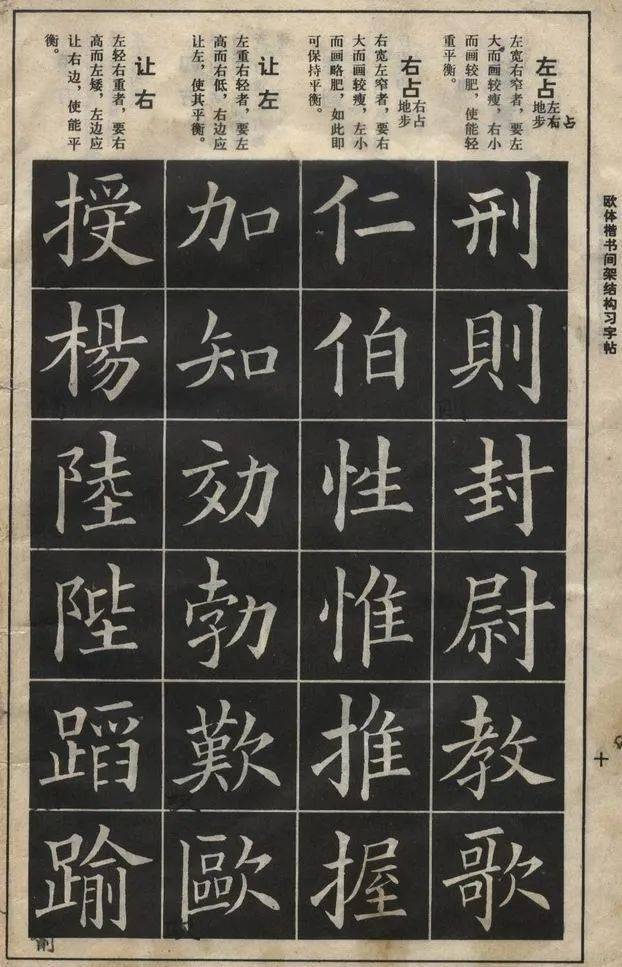 欧体楷书间架结构习字帖
十
左占
地步
左宽右窄者，要左
大而画较瘦，右小
而画较肥，使能轻
重平衡。
右占
地步
右宽左窄者，要右
大而画较瘦，左小
而画略肥，如此即
可保持平衡。
让左
左重右轻者，要左
高而右低，右边应
让左，使其平衡。
让右
左轻右重者，要右
高而左矮，左边应
让右边，使能平
衡。
刑則封尉教歌
仁伯性惟推握
加知効勃歎歐
授楊陸陛蹈踰